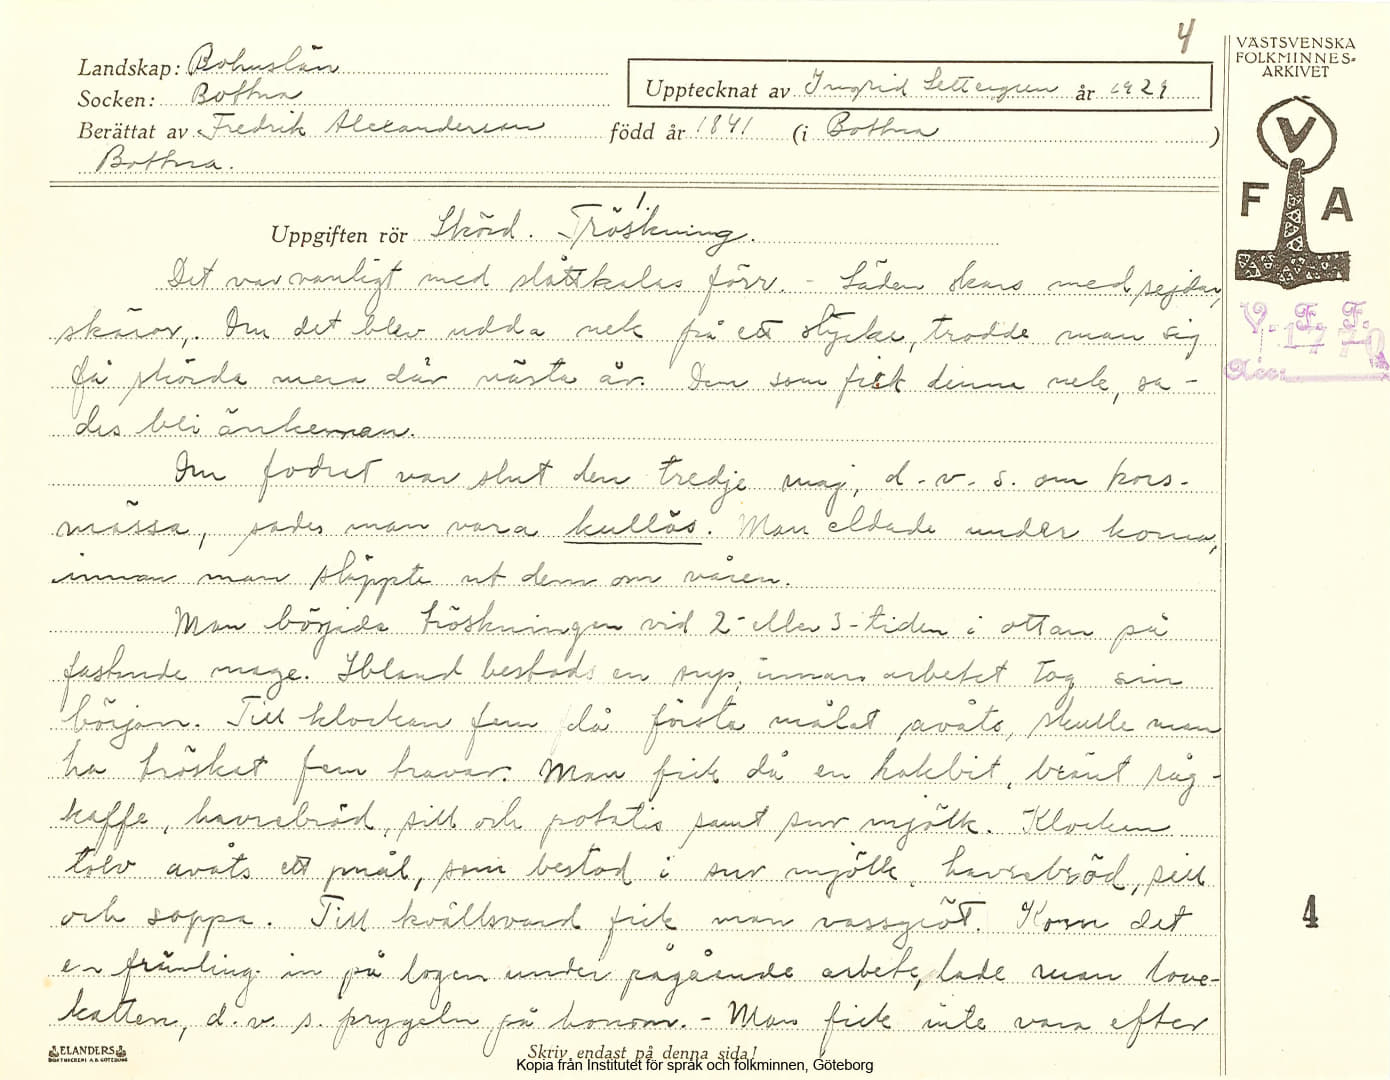 4
VÄSTSVENSKA
FOLKMINNES-
ARKIVET
Landskap: Bohuslän
Upptecknat av Ingrid Settergren år 1929
Socken: Bottna
Berättat av Fredrik Alexandersson född år 1841 (i Bottna )
Bottna.
V
F A
Uppgiften rör Skörd. Tröskning. 1.
Det var vanligt med slåttkalas förr. - Säden skars med sejdar,
skäror,. Om det blev udda nek på ett stycke, trodde man sig
få skörda mera där nästa år. Den som fick denna nek, sa-
des bli änkeman.
Om fodret var slut den tredje maj, d.v.s. om kors-
mässa, sades man vara kullös. Man eldade under korna,
innan man släppte ut dem om våren.
Man började tröskningen vid 2- eller 3-tiden i ottan på
fastande mage. Ibland bestods en sup, innan arbetet tog sin
början. Till klockan fem då första målet avåts, skulle man
ha tröskat fem travar. Man fick då en kakbit, bränt råg-
kaffe, havrebröd, sill och potatis samt sur mjölk. Klockan
tolv avåts ett mål, som bestod i sur mjölk, havrebröd, sill
och soppa. Till kvällsvard fick man vassgröt. Kom det
en främling in på logen under pågående arbete, lade man love-
katten, d.v.s. prygeln på honom. - Man fick inte vara efter
V. F. F.
1770
Acc:
4
ELANDERS
BOKTRYCKERI A.B. GÖTEBORG
Skriv endast på denna sida!
Kopia från Institutet för språk och folkminnen, Göteborg